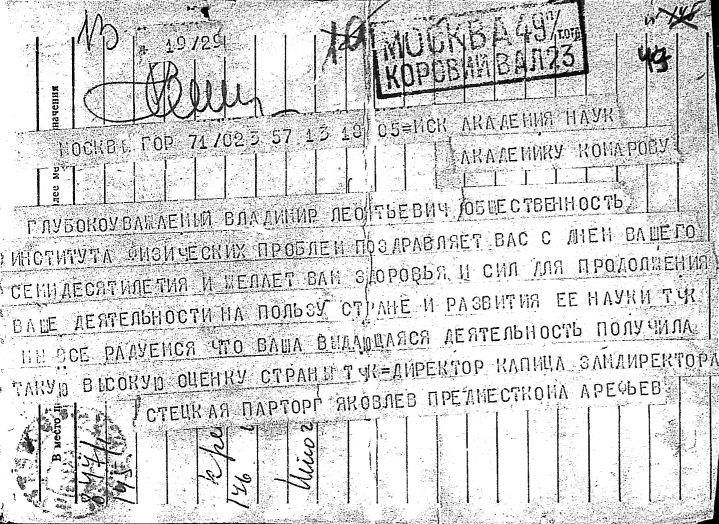 13
19/29
МОСКВА 49
КОРОВИЙ ВАЛ 23
49
МОСКВЫ ГОР 71/023 57 13 18 05=МСК АКАДЕМИЯ НАУК
АКАДЕМИКУ КОМАРОВУ
ГЛУБОКОУВАЖАЕМЫЙ ВЛАДИМИР ЛЕОНТЬЕВИЧ ОБЩЕСТВЕННОСТЬ
ИНСТИТУТА ФИЗИЧЕСКИХ ПРОБЛЕМ ПОЗДРАВЛЯЕТ ВАС С ДНЕМ ВАШЕГО
СЕМИДЕСЯТИЛЕТИЯ И ЖЕЛАЕТ ВАМ ЗДОРОВЬЯ И СИЛ ДЛЯ ПРОДОЛЖЕНИЯ
ВАШЕ ДЕЯТЕЛЬНОСТИ НА ПОЛЬЗУ СТРАНЕ И РАЗВИТИЯ ЕЕ НАУКИ ТЧК
МЫ ВСЕ РАДУЕМСЯ ЧТО ВАША ВЫДАЮЩАЯСЯ ДЕЯТЕЛЬНОСТЬ ПОЛУЧИЛА
ТАКУЮ ВЫСОКУЮ ОЦЕНКУ СТРАНЫ ТЧК=ДИРЕКТОР КАПИЦА ЗАМДИРЕКТОРА
СТЕЦКАЯ ПАРТОРГ ЯКОВЛЕВ ПРЕДМЕСТКОМА АРЕФЬЕВ
В место